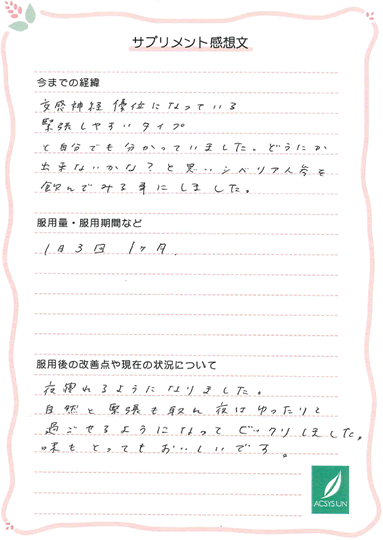 サプリメント感想文
今までの経緯
交感神経 優位になっている
緊張しやすいタイプ
と自分でも分かっていました。どうにか
出来ないかな？と思いシベリア人参を
飲んでみる事にしました。
服用量・服用期間など
1日3回 1ヶ月.
服用後の改善点や現在の状況について
夜眠れるようになりました。
自然と緊張も取れ 夜はゆったりと
過ごせるようになって ビックリしました。
味もとってもおいしいです。
ACSYS UN